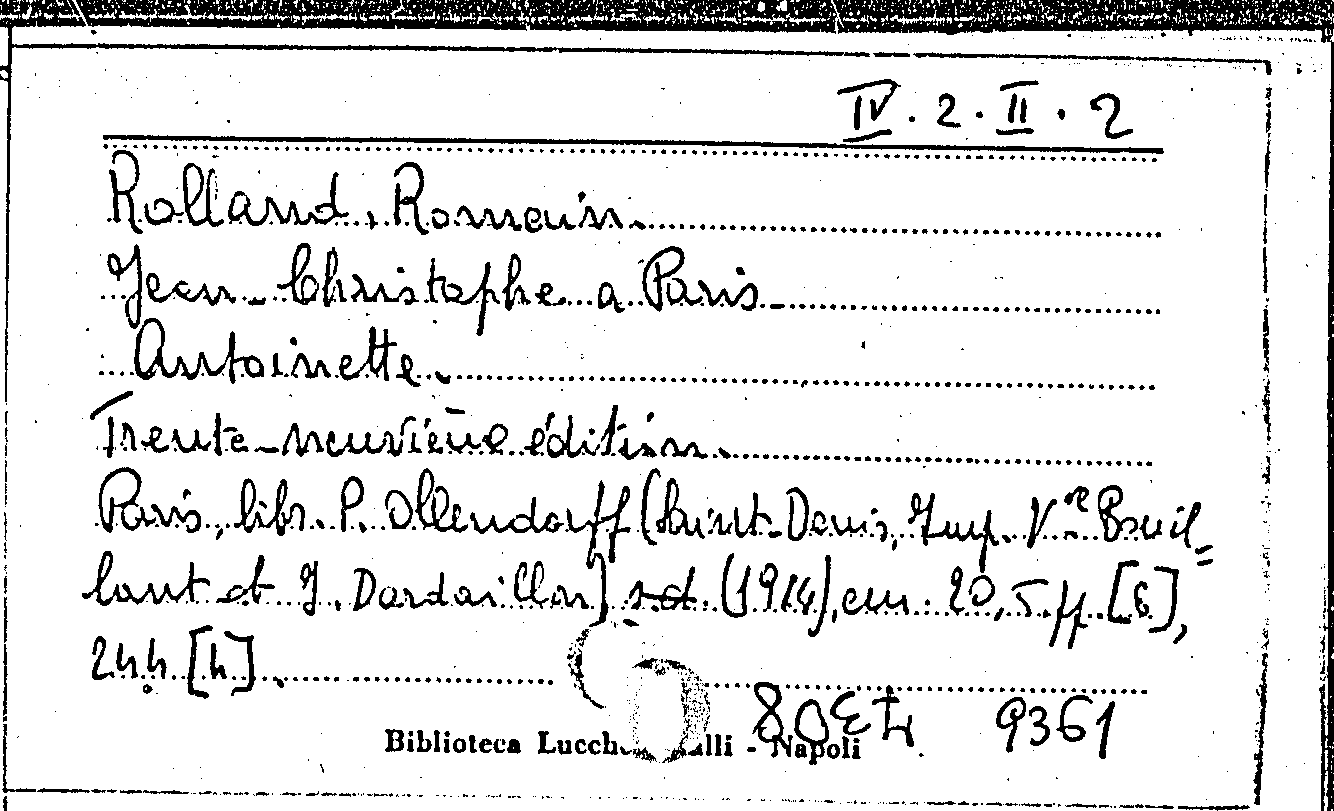 IV. 2. II. 2
Rolland, Romain.
Jean-Christophe a Paris-
Antoinette.
Trente-neuvième édition.
Paris, libr. P. Ollendorff (Saint-Denis, Imp. Vve Bouil=
lant et J. Dardaillon) s.d. (1914), cm. 20,5. ff. [6],
244 [4].
9361
Biblioteca - Napoli